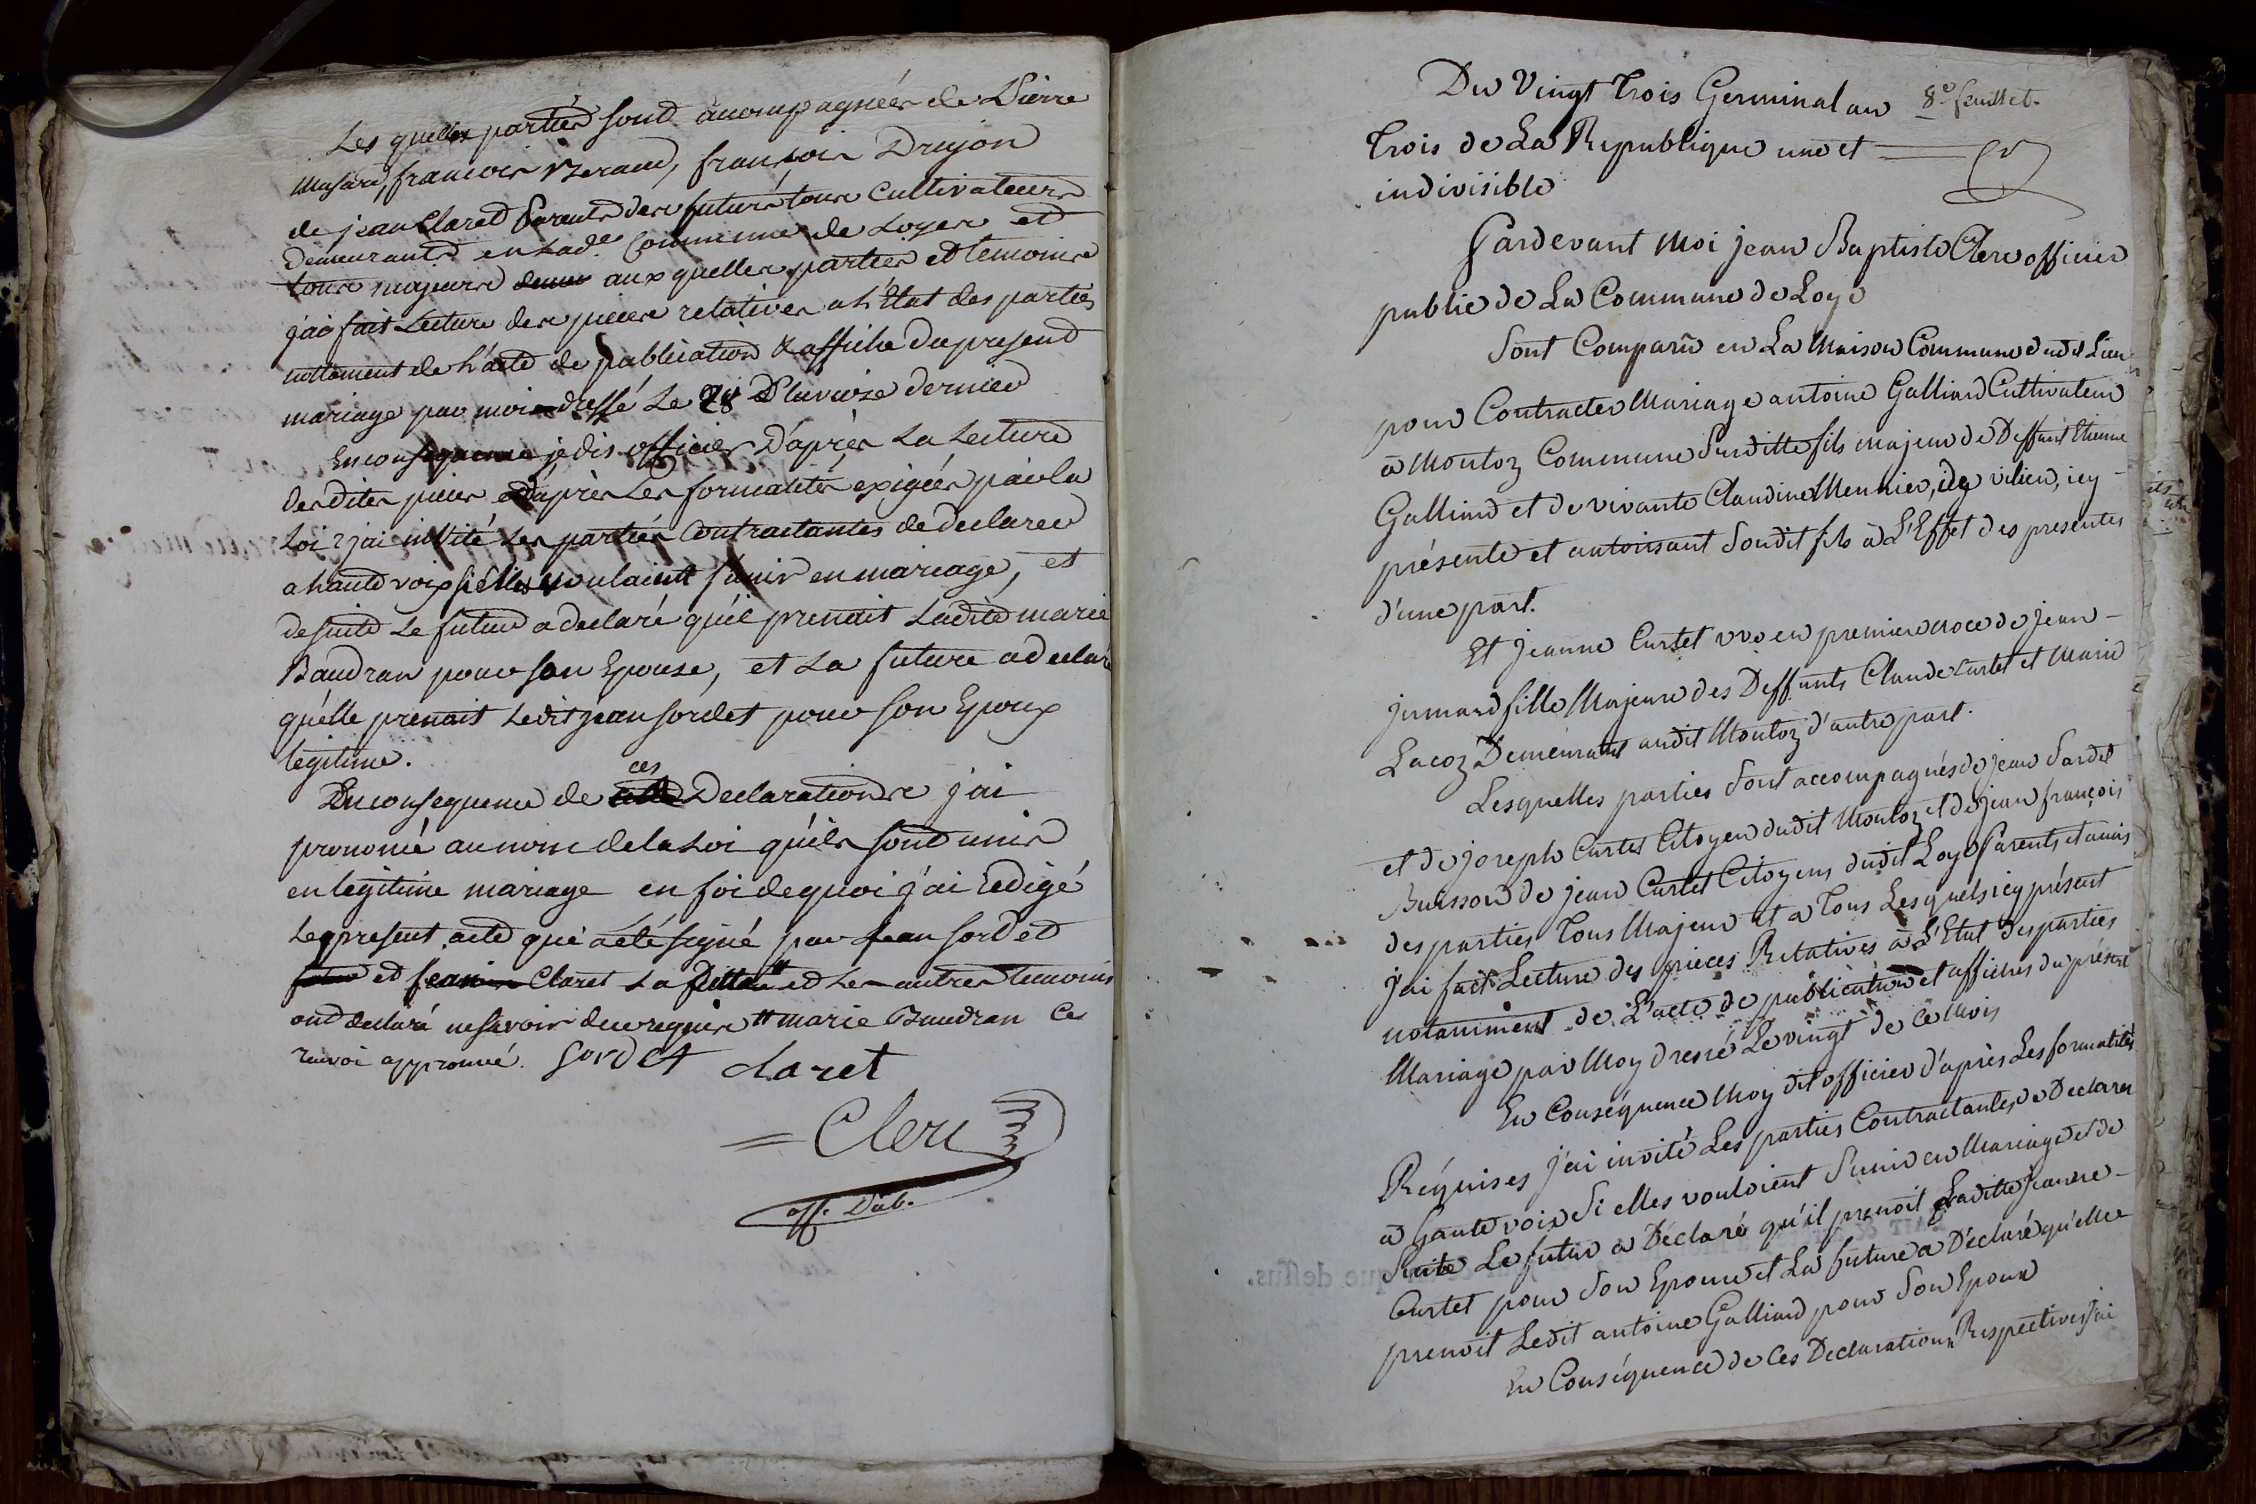 Les quelles parties sont acompagnées de Pierre
Musard, francois Beraud, francois Drujon
de jean Claret Parents des futurs tous Cultivateurs
demeurants en lade Commune de Loyes et
tous majeurs aux quelles parties et temoins
j'ai fait Lecture des pieces relatives a l'État des parties
nottament de l'acte de publication & affiche du present
mariage par moi dressé Le 28 Pluviose dernier
En consequence je dis officier D'après La Lecture
desdites pieces et d'après Les formalités exigées par la
Loi j'ai invité Les parties Contractantes de declarer
a haute voix si elles voulaient s'unir en mariage, et
desuite Le futur a declaré qu'il prenait Ladite marie
Baudran pour son Epouse, et La future a declaré
qu'elle prenait Ledit jean sordet pour son Epoux
legitime.
En consequence de ces Declarations j'ai
prononcé au nom de la Loi qu'ils sont unis
en legitime mariage en foi de quoi j'ai Redigé
Le present acte qui a été signé par jean sordet
et jean Claret La ditte # et Les autres temoins
ont declaré ne savoir de ce requis # marie Baudran Ce
renvoi approuvé. Sordet Claret
= Clerc
off. Pub.
Du Vingt Trois Germinal an 8e feuillet.
Trois de La Republique une et
indivisible
Pardevant Moi jean Baptiste Clerc officier
public de La Commune de Loye
Sont Comparu en La Maison Commune dudit Lieu
pour Contracter Mariage antoine Galliard Cultivateur
a Montoz Commune Susditte fils majeur de Deffunt Etienne
Galliard et de vivante Claudine Meunier, icy
présente et autorisant Soudit fils à L'Effet des presentes
d'une part.
Et Jeanne Curtet vve en premiere noce de Jean
jumard fille Majeure des Deffunts Claude Curtet et Marie
Lacoz Demeurant audit Montoz d'autre part.
Lesquelles parties Sont accompagnés de jean Sardet
et de joseph Curtet Citoyen dudit Montoz et de jean françois
Buisson de jean Curtet Citoyens dudit Loye Parents et amis
des parties Tous Majeur et a Tous Lesquels icy présent
j'ai fait Lecture des pieces Relatives à L'Etat des parties
notamment de L'acte de publication et affiches du présent
Mariage par Moy dressé Le vingt de Ce Mois
En Conséquence Moy dit officier d'après Les formalités
Réquises j'ai invité Les parties Contractantes a Declarer
a haute voix Si elles vouloient S'unir en Mariage et de
Suite Le futur a Déclaré qu'il prenoit Laditte Jeanne
Curtet pour Son Epouse et La future a Déclaré qu'elle
prenoit Ledit antoine Galliard pour Son Epoux
En Conséquence de Ces Declarations Respectives j'ai